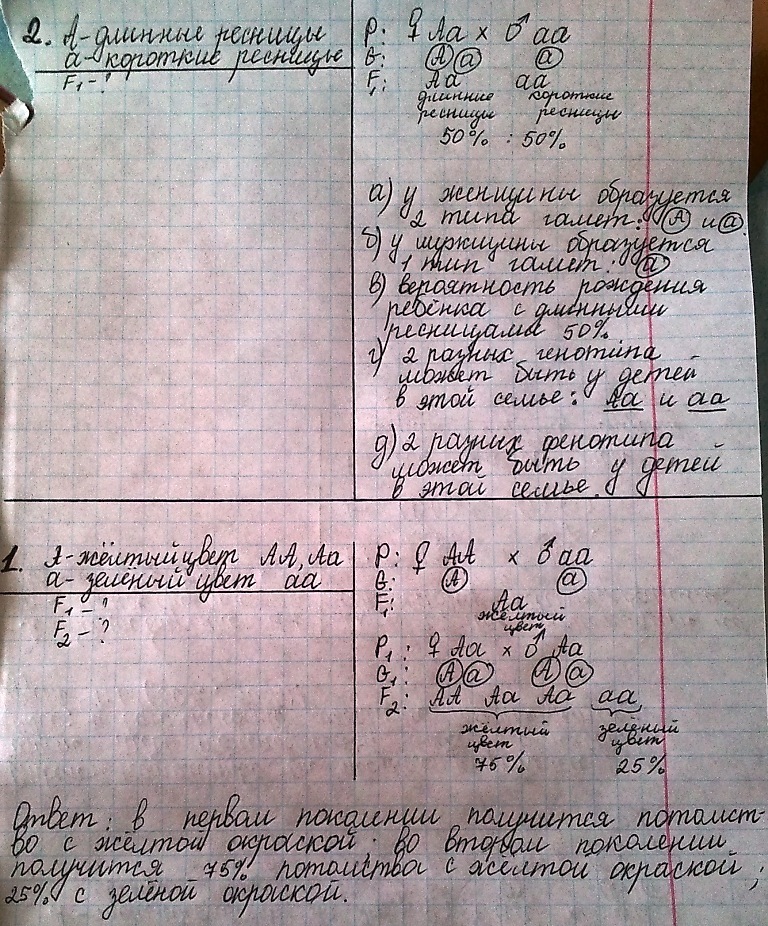 2. А - длинные ресницы
а - короткие ресницы
F₁ - ?
P: ♀ Аа × ♂ аа
G: А а а
F₁: Аа аа
длинные короткие
ресницы ресницы
50% : 50%
а) у женщины образуется
2 типа гамет: А и а
б) у мужщины образуется
1 тип гамет: а
в) вероятность рождения
ребёнка с длинными
ресницами 50%
г) 2 разных генотипа
может быть у детей
в этой семье: Аа и аа
д) 2 разных фенотипа
может быть у детей
в этой семье.
1. А - жёлтый цвет АА, Аа
а - зелёный цвет аа
F₁ - ?
F₂ - ?
P: ♀ АА × ♂ аа
G: А а
F₁: Аа
жёлтый
цвет
P₁: ♀ Аа × ♂ Аа
G₁: А а А а
F₂: АА Аа Аа аа
жёлтый зелёный
цвет цвет
75% 25%
Ответ: в первом поколении получится потомст-
во с жёлтой окраской. во втором поколении
получится 75% потомства с жёлтой окраской;
25% с зелёной окраской.